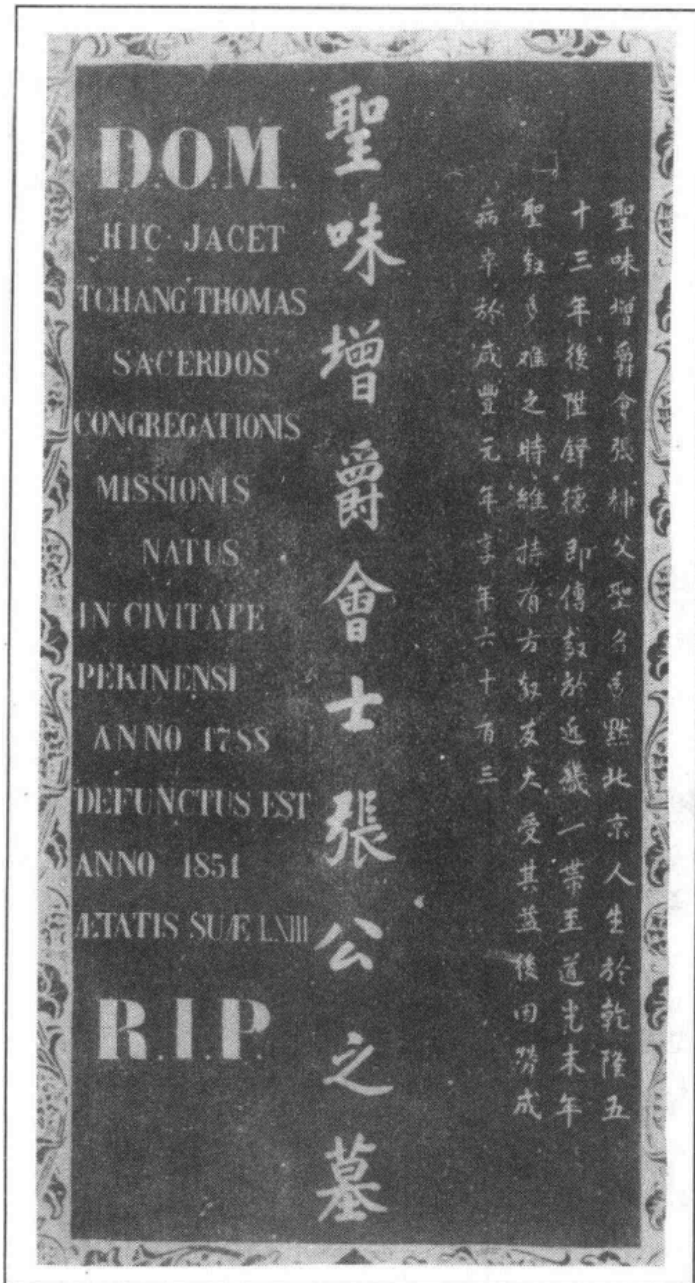 D.O.M.
HIC JACET
TCHANG THOMAS
SACERDOS
CONGREGATIONIS
MISSIONIS
NATUS
IN CIVITATE
PEKINENSI
ANNO 1788
DEFUNCTUS EST
ANNO 1851
ÆTATIS SUÆ LXIII
R.I.P.
聖味增爵會士張公之墓
聖味增爵會張神父聖名多默北京人生於乾隆五
十三年後陞鐸德即傳教於近畿一帶至道光末年
聖教多难之時維持有方教友大受其益後因勞成
病卒於咸豐元年享年六十有三